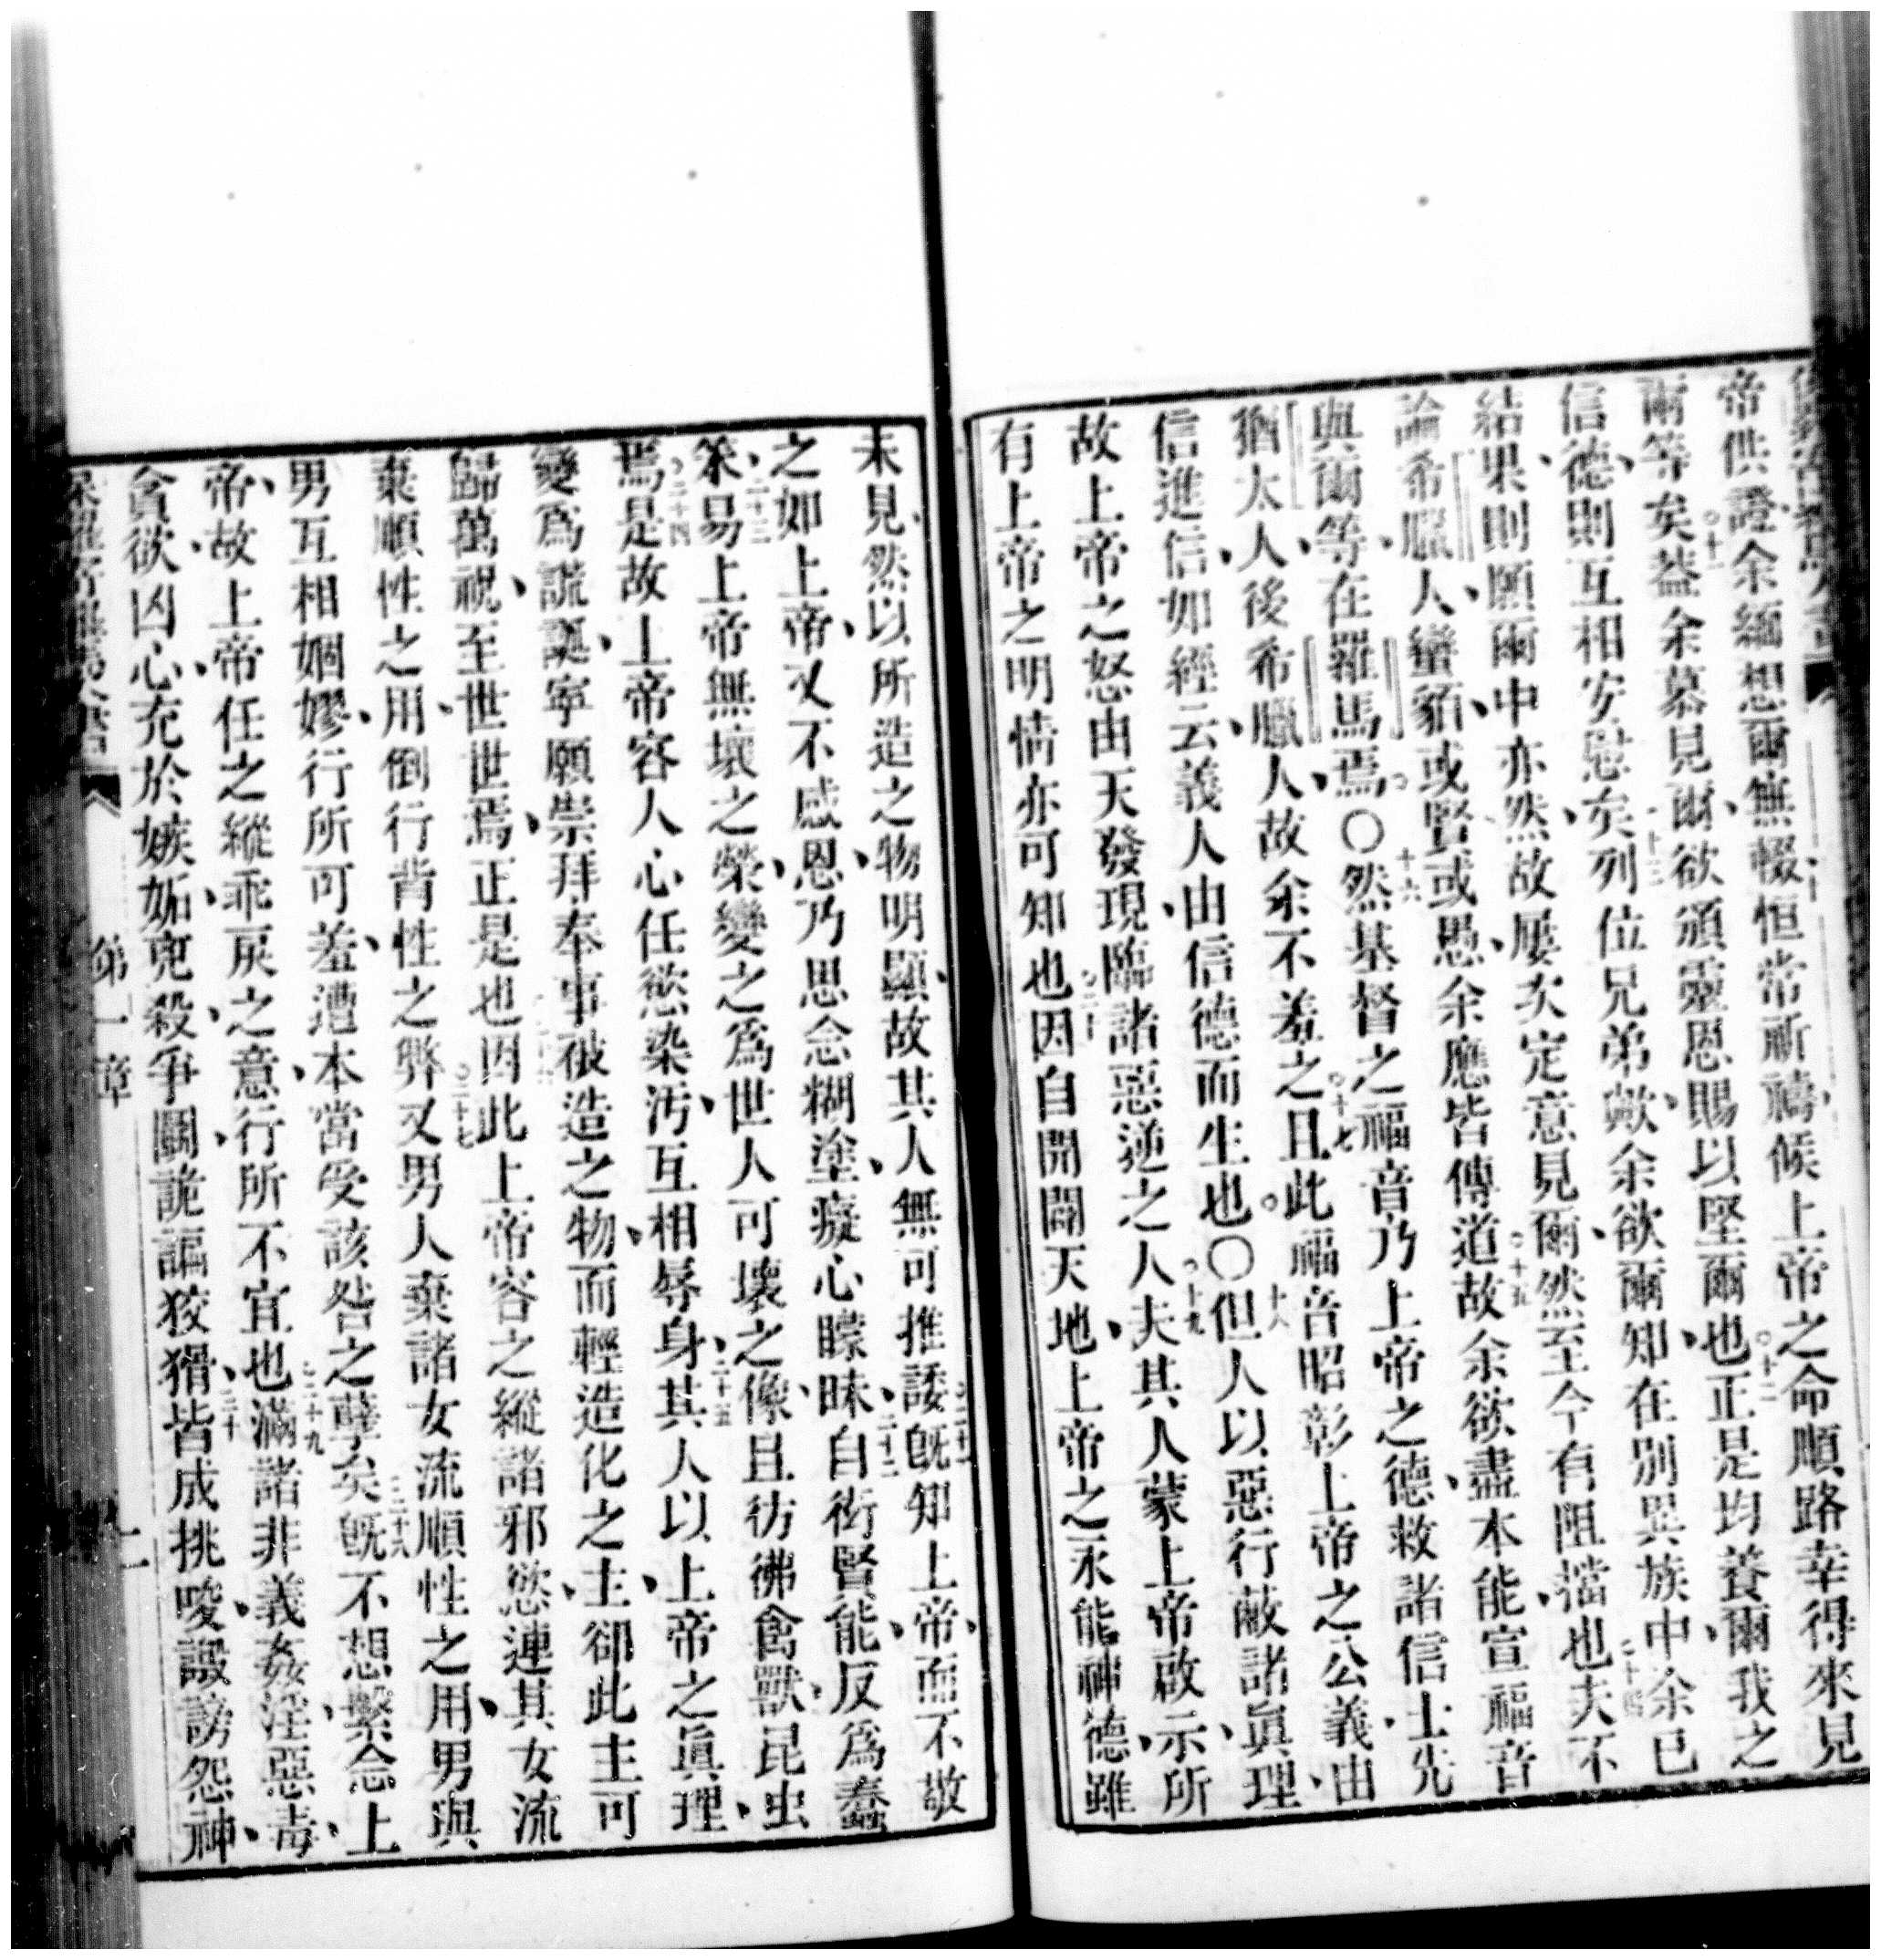 帝供證余緬想爾無輟恒常祈禱候上帝之命順路幸得來見
爾等矣十一葢余慕見爾欲頒靈恩賜以堅爾也十二正是均養爾我之
信德則互相安慰矣十三列位兄弟歟余欲爾知在別異族中余已
結果則願爾中亦然故屢次定意見爾然至今有阻擋也十四夫不
論希臘人蠻貊或賢或愚余應皆傳道十五故余欲盡本能宣福音
與爾等在羅馬焉〇十六然基督之福音乃上帝之德救諸信士先
猶太人後希臘人故余不羞之十七且此福音昭彰上帝之公義由
信進信如經云義人由信德而生也〇十八但人以惡行蔽諸眞理
故上帝之怒由天發現臨諸惡逆之人十九夫其人蒙上帝啟示所
有上帝之明情亦可知也二十因自開闢天地上帝之永能神德雖
未見然以所造之物明顯故其人無可推諉二十一旣知上帝而不敬
之如上帝又不感恩乃思念糊塗癡心矇昧二十二自衒賢能反爲蠢
笨二十三易上帝無壞之榮變之爲世人可壞之像且彷彿禽獸昆虫
焉二十四是故上帝容人心任慾染汚互相辱身二十五其人以上帝之眞理
變爲謊誕寧願崇拜奉事被造之物而輕造化之主卻此主可
歸萬祝至世世焉正是也因此上帝容之縱諸邪慾連其女流
棄順性之用倒行背性之弊二十七又男人棄諸女流順性之用男與
男互相姻嫪行所可羞遭本當受該咎之孽矣二十八旣不想繫念上
帝故上帝任之縱乖戾之意行所不宜也二十九滿諸非義姦淫惡毒
貪欲凶心充於嫉妬兇殺爭鬬詭謳狡猾三十皆成挑唆譭謗怨神
第一章
二